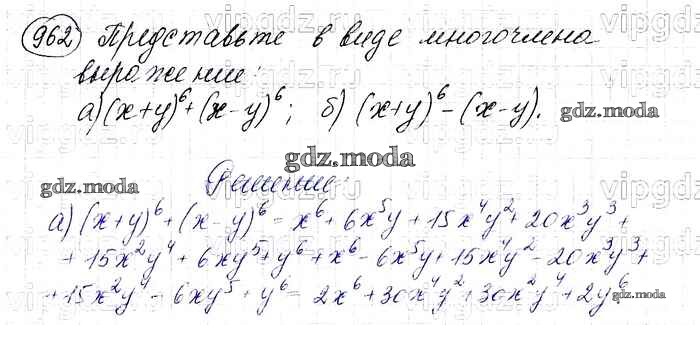 962 Представьте в виде многочлена
выражение:
а) (x+y)⁶+(x-y)⁶; б) (x+y)⁶-(x-y).
gdz.moda
gdz.moda
Решение:
gdz.moda
а) (x+y)⁶+(x-y)⁶= x⁶+6x⁵y+15x⁴y²+20x³y³+
+15x²y⁴+6xy⁵+y⁶+x⁶-6x⁵y+15x⁴y²-20x³y³+
+15x²y⁴-6xy⁵+y⁶= 2x⁶+30x⁴y²+30x²y⁴+2y⁶.
gdz.moda